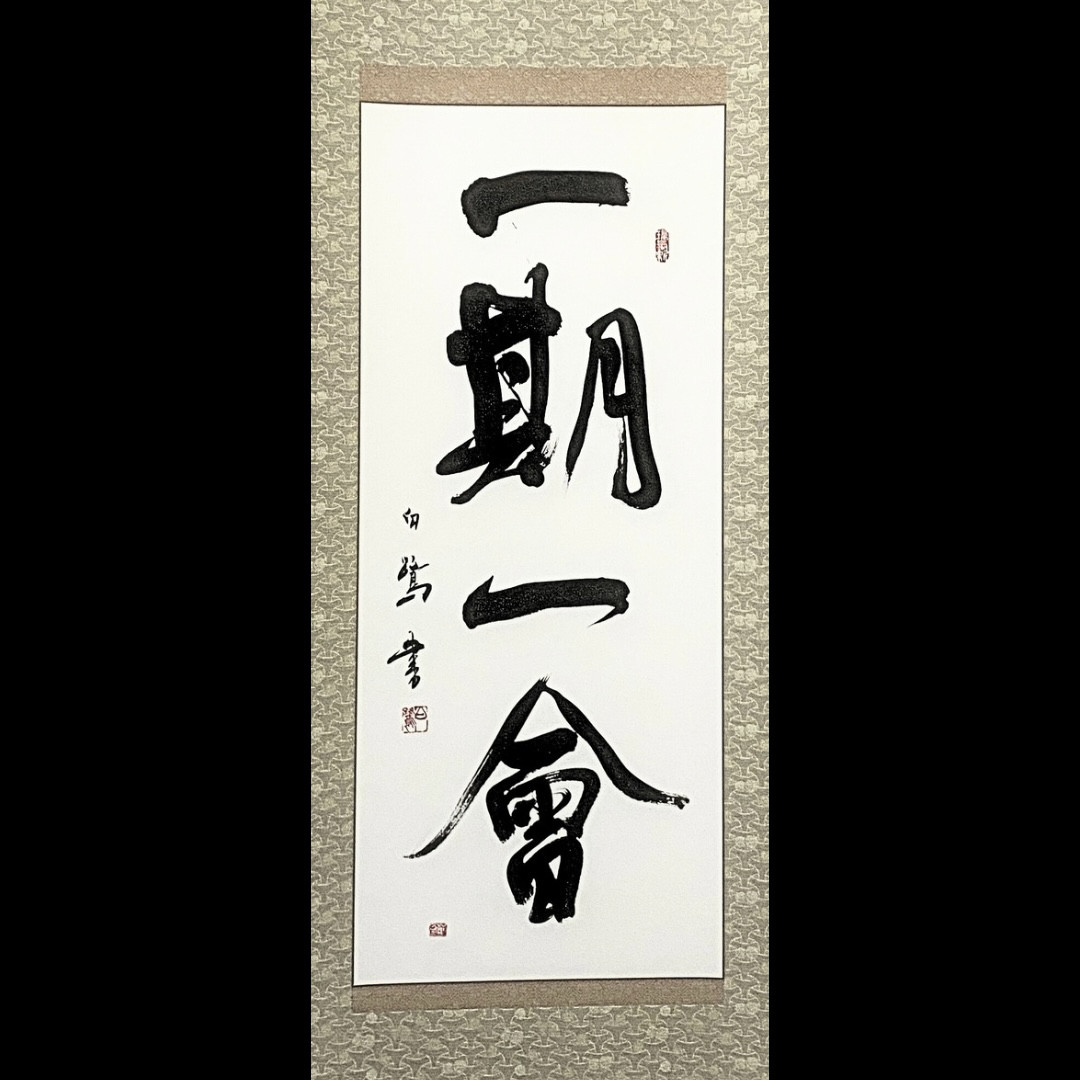 一期一會
白鷺書